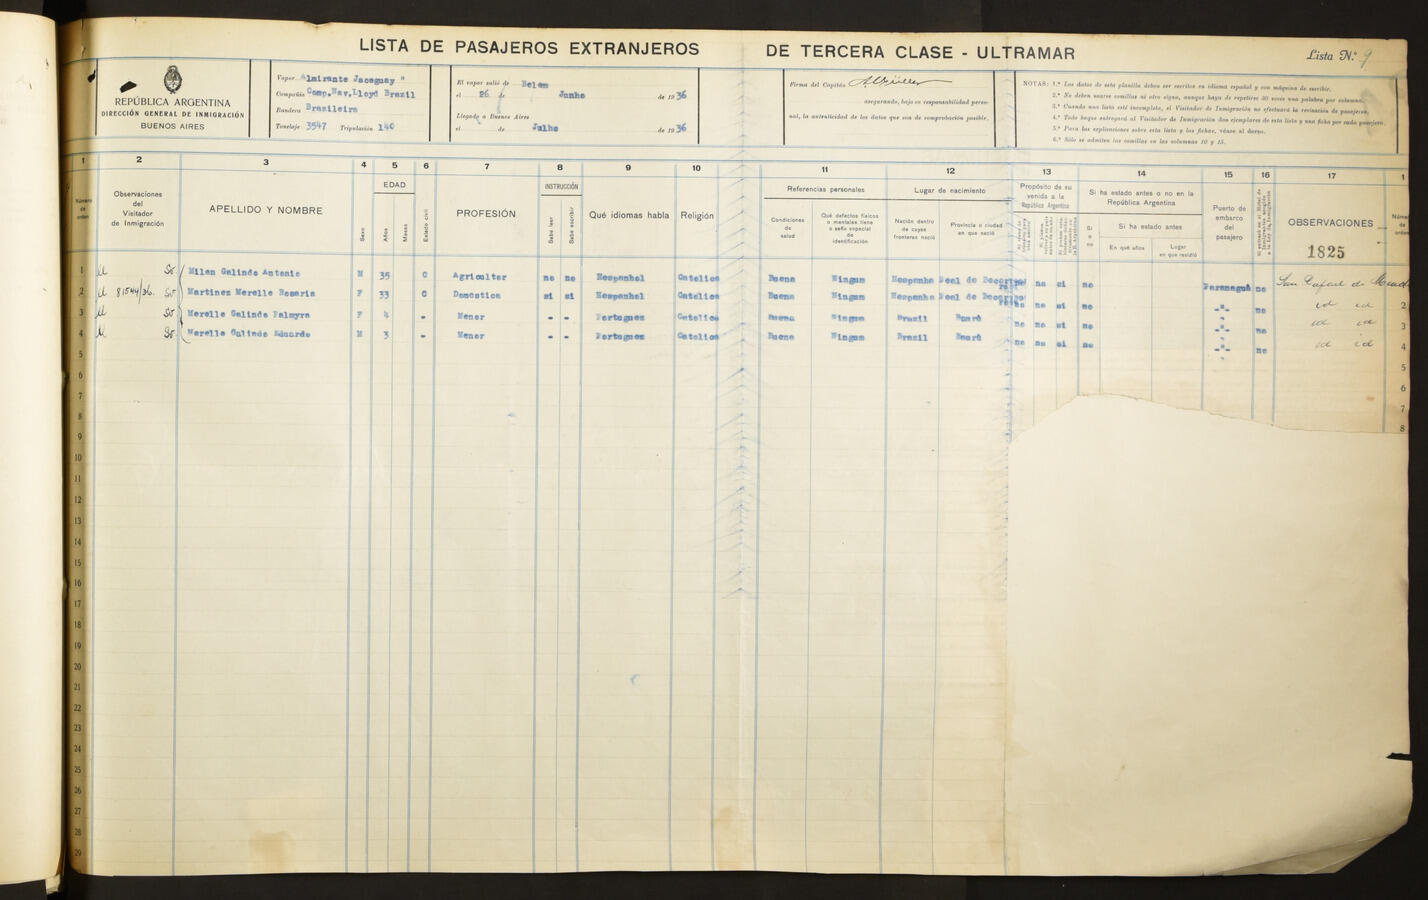 LISTA DE PASAJEROS EXTRANJEROS DE TERCERA CLASE - ULTRAMAR
Lista N.º 9
REPÚBLICA ARGENTINA
DIRECCIÓN GENERAL DE INMIGRACIÓN
BUENOS AIRES
Vapor "Almirante Jaceguay"
Compañía Comp.Nav.Lloyd Brazil
Bandera Brazileira
Tonelaje 3547 Tripulación 140
El vapor salió de Belem
el 26 de Junho de 1936
Llegado a Buenos Aires
el de Julho de 1936
Firma del Capitán
asegurando, bajo su responsabilidad perso-
nal, la autenticidad de los datos que son de comprobación posible.
NOTAS: 1.ª Los datos de esta planilla deben ser escritos en idioma español y con máquina de escribir.
2.ª No deben usarse comillas ni otro signo, aunque haya de repetirse 30 veces una palabra por columna.
3.ª Cuando una lista esté incompleta, el Visitador de Inmigración no efectuará la revisación de pasajeros.
4.ª Todo buque entregará al Visitador de Inmigración dos ejemplares de esta lista y una ficha por cada pasajero.
5.ª Para las explicaciones sobre esta lista y las fichas, véase al dorso.
6.ª Sólo se admiten las comillas en las columnas 10 y 15.
1 2 3 4 5 6 7 8 9 10 11 12 13 14 15 16 17 1
Número de orden
Observaciones del Visitador de Inmigración
APELLIDO Y NOMBRE
Sexo
EDAD
Años
Meses
Estado civil
PROFESIÓN
INSTRUCCIÓN
Sabe leer
Sabe escribir
Qué idiomas habla
Religión
Referencias personales
Condiciones de salud
Qué defectos físicos o mentales tiene o seña especial de identificación
Lugar de nacimiento
Nación dentro de cuyas fronteras nació
Provincia o ciudad en que nació
Propósito de su venida a la República Argentina
Si ha estado antes o no en la República Argentina
Si o no
Si ha estado antes
En qué años
Lugar en que residió
Puerto de embarco del pasajero
OBSERVACIONES
1825
Número de orden
1 Milan Galindo Antonio M 35 C Agricultor no no Hespanhol Catolica Buena Ningum Hespanha no si no Paranaguá no San Rafael de
2 81544/36. Martinez Merelle Rosaria F 33 C Domestica si si Hespanhol Catolica Buena Ningum Hespanha no no si no -"- no id id 2
3 Merelle Galindo Palmyra F 4 - Menor - - Portugues Catolica Buena Ningum Brazil no no si no -"- no id id 3
4 Merelle Galindo Eduardo M 3 - Menor - - Portugues Catolica Buena Ningum Brazil no no si no -"- no id id 4
5 5
6 6
7 7
8 8
9
10
11
12
13
14
15
16
17
18
19
20
21
22
23
24
25
26
27
28
29